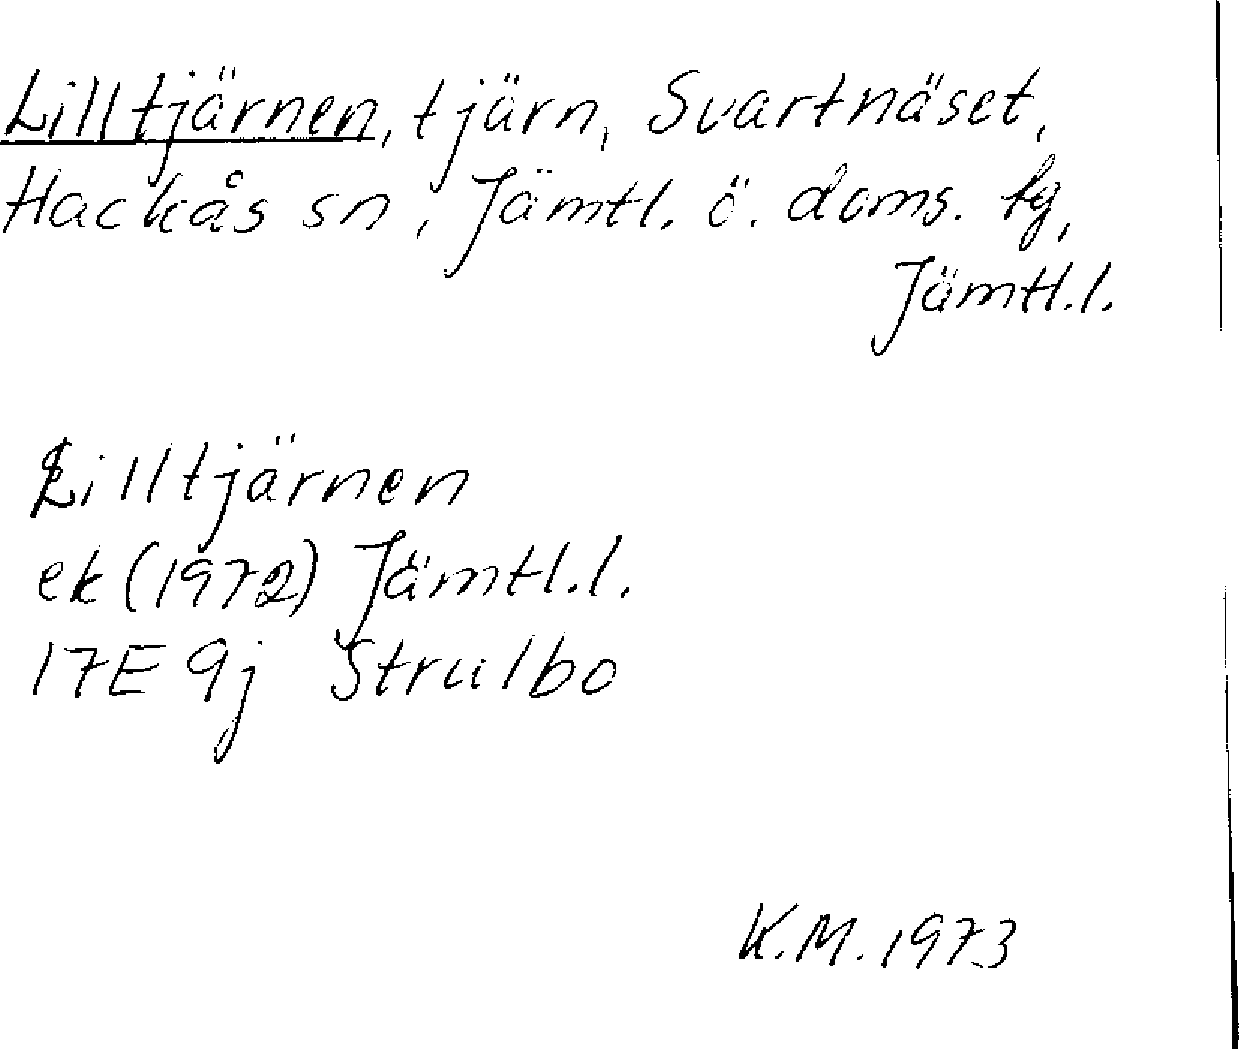 Lilltjärnen, tjärn, Svartnäset,
Hackås sn, Jämtl. ö. doms. fg,
Jämtl.l.
Lilltjärnen
ek (1972) Jämtl.l.
17E 9j Strulbo
K.M. 1973